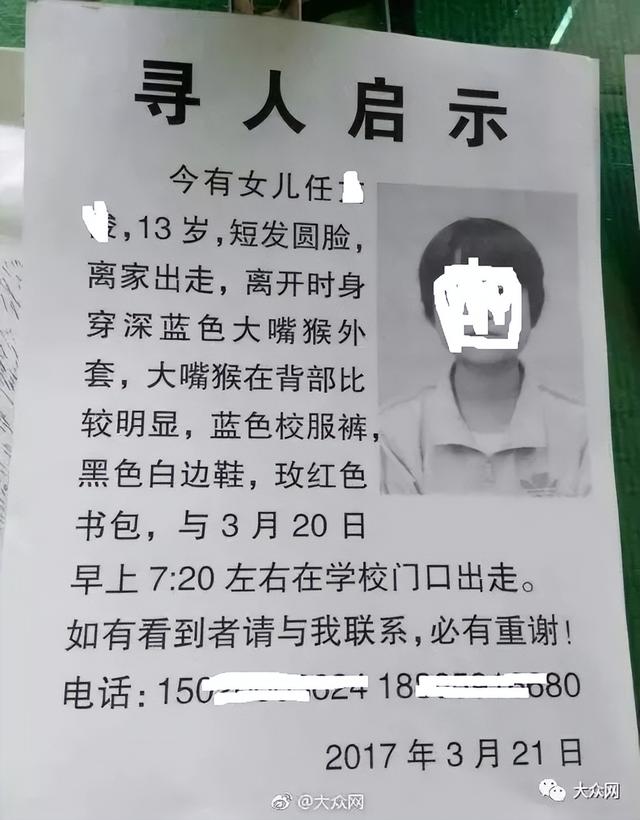 寻人启示
今有女儿任
,13岁,短发圆脸,
离家出走,离开时身
穿深蓝色大嘴猴外
套,大嘴猴在背部比
较明显,蓝色校服裤,
黑色白边鞋,玫红色
书包,与3月20日
早上7:20左右在学校门口出走。
如有看到者请与我联系,必有重谢!
电话:150 624 18 680
2017年3月21日
@大众网
大众网